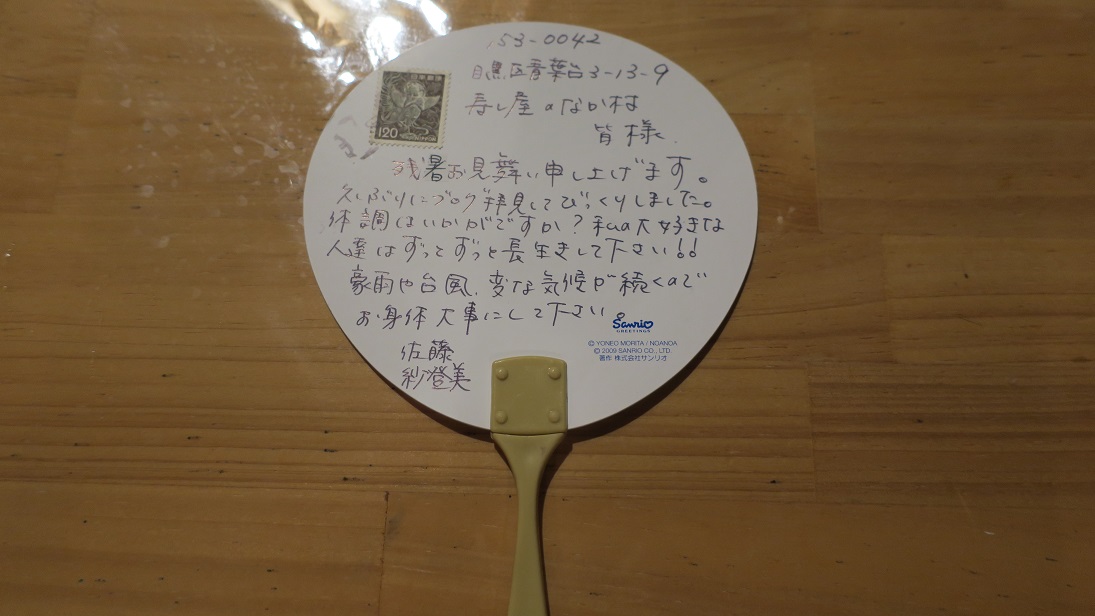 153-0042
目黒区青葉台3-13-9
寿し屋のなか村
皆様
日本郵便
120
残暑お見舞い申し上げます。
久しぶりにブログ拝見してびっくりしました。
体調はいかがですか?私の大好きな
人達はずっとずっと長生きして下さい!!
豪雨や台風、変な気候が続くので
お身体大事にして下さい。
佐藤
紗登美
Sanrio
GREETINGS
© YONEO MORITA / NOANDA
© 2009 SANRIO CO., LTD.
著作 株式会社サンリオ